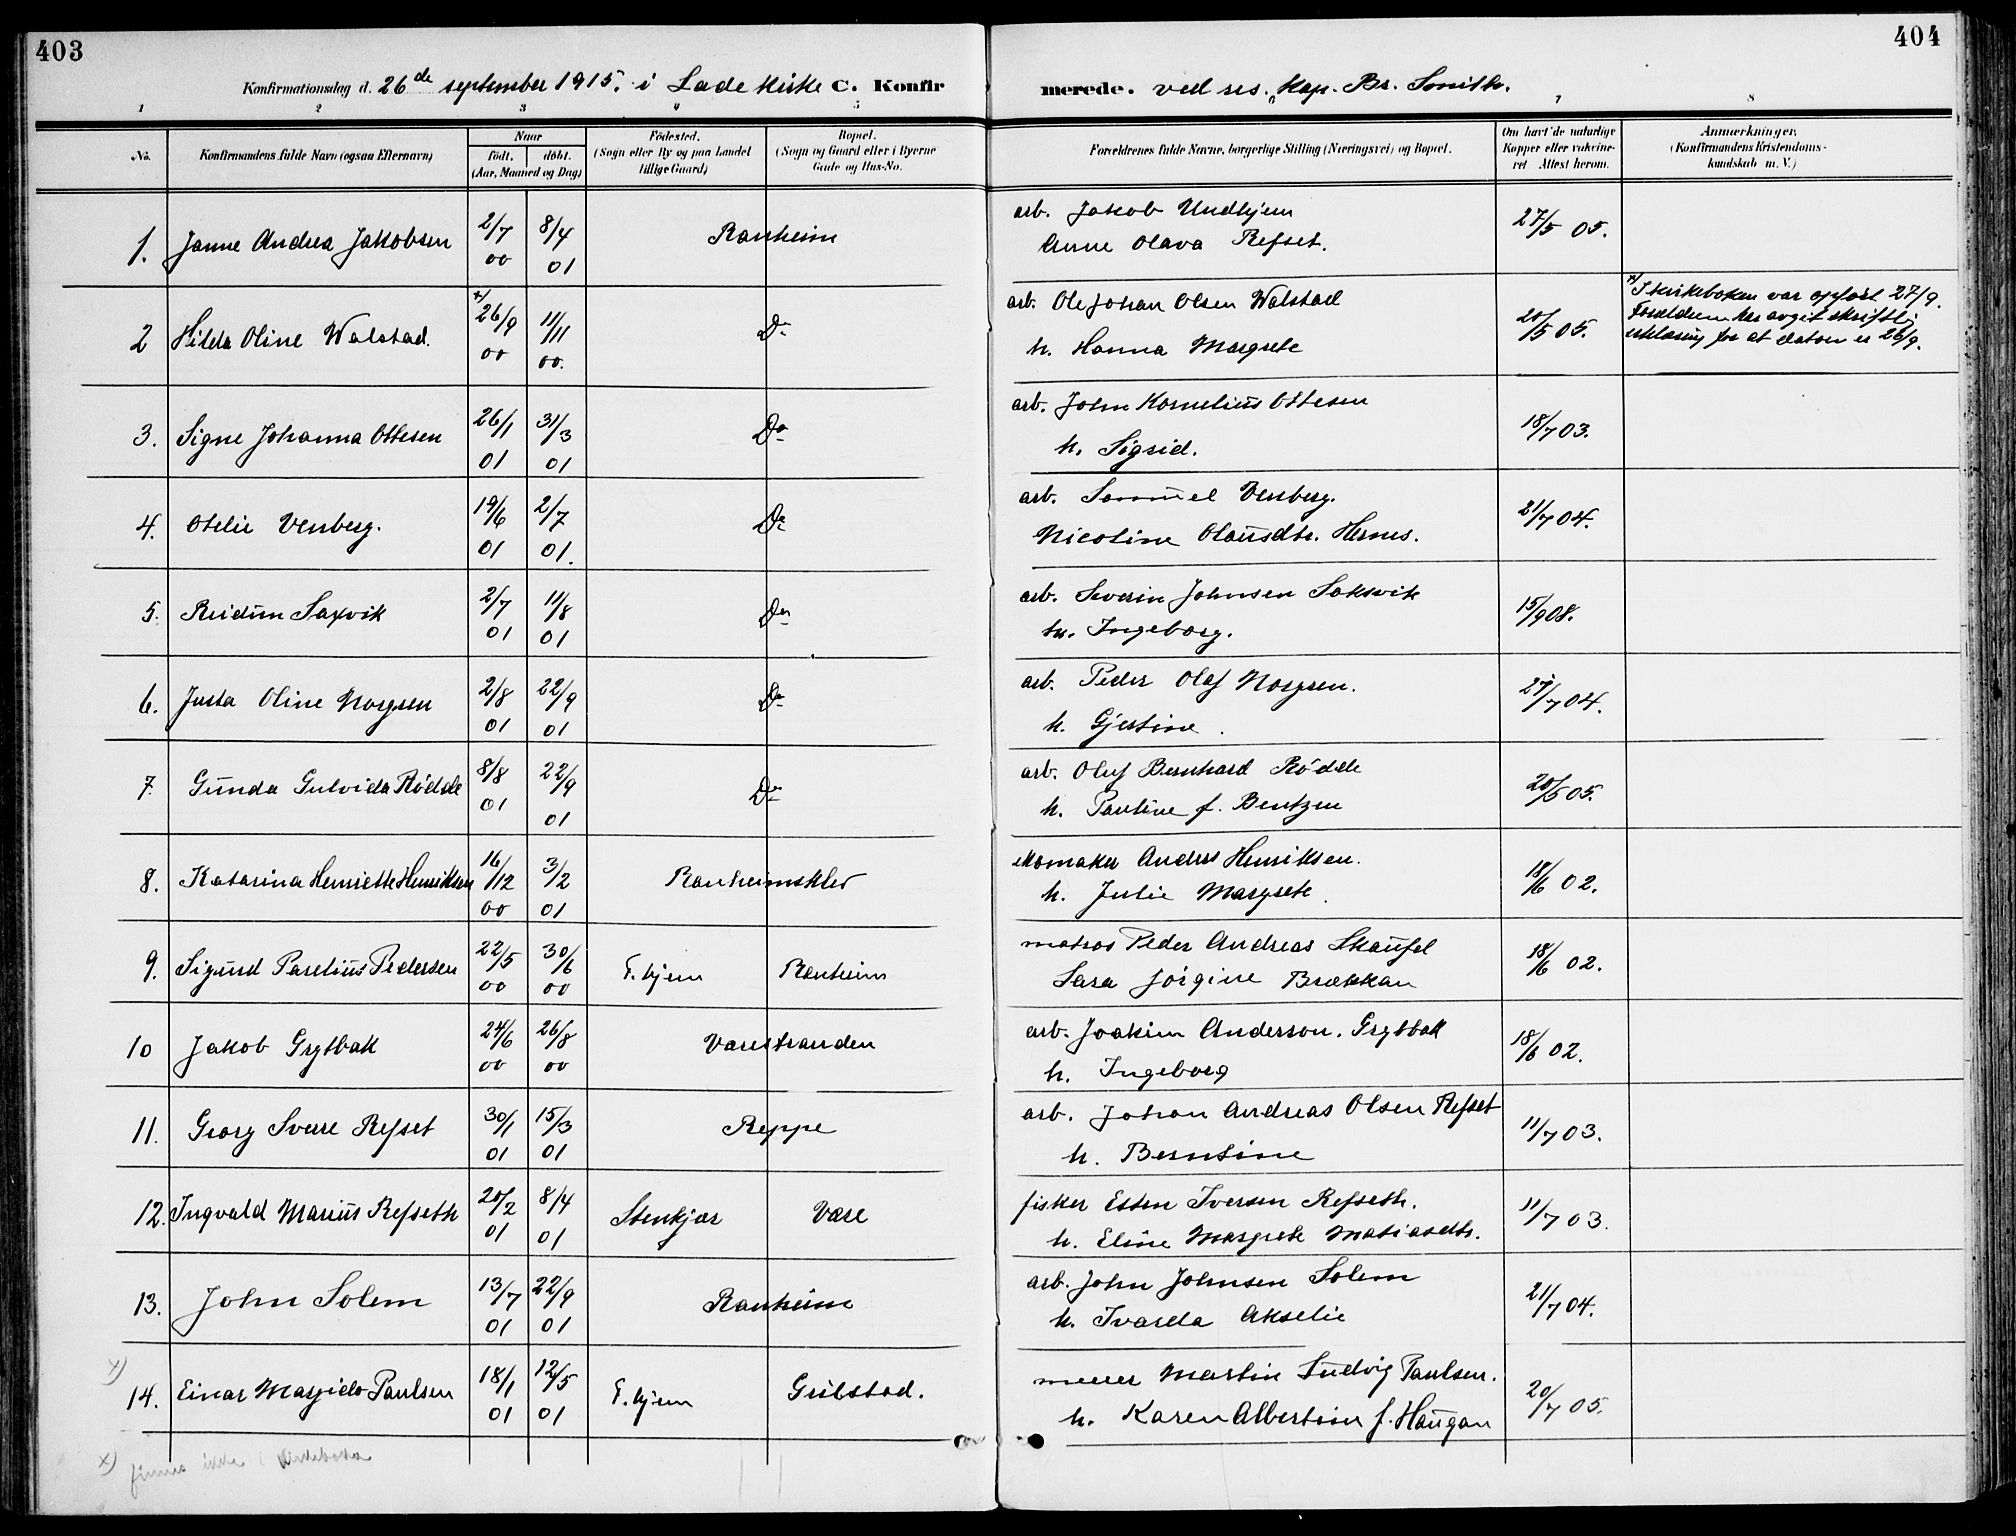 403
404
Konfirmationsdag d. 26de september 1915. i Lade kirke C. Konfirmerede. ved res. kap. Br. Smith.
1 2 3 4 5 7 8
No.
Konfirmandens fulde Navn (ogsaa Efternavn)
Naar
født. døbt.
(Aar, Maaned og Dag)
Fødested.
(Sogn eller By og paa Landet
tillige Gaard)
Bopæl.
(Sogn og Gaard eller i Byerne
Gade og Hus-No.
Forældrenes fulde Navne, borgerlige Stilling (Næringsvei) og Bopæl.
Om havt de naturlige
Kopper eller vakcine-
ret Attest herom.
Anmærkninger,
(Konfirmandens Kristendoms-
kundskab m. V.)
1. Janne Andrea Jakobsen 2/7 00 8/4 01 Ranheim
arb. Jakob Undhjem 27/5 05.
Anne Olava Refset.
2 Hilda Oline Walstad. x) 26/9 00 11/11 00. Do
arb. Ole Johan Olsen Walstad 20/5 05.
h. Hanna Margrete
x) I kirkeboken var opført 27/9.
Forældrene har avgit skriftlig
erklæring for at datoen er 26/9.
3. Signe Johanna Ottesen 26/1 01 31/3 01 Do
arb. John Kornelius Ottesen 18/7 03.
h. Sigrid.
4. Otelie Venberg. 19/6 01 2/7 01. Do
arb. Samuel Venberg. 21/7 04.
Nicoline Olausdtr. Hernes.
5. Reidun Saxvik 2/7 01 11/8 01 Do
arb. Severin Johnsen Saksvik 15/9 08.
h. Ingeborg.
6. Justa Oline Norgren 2/8 01 22/9 01 Do
arb. Peder Olaf Norgren. 27/7 04.
h. Gjertine.
7. Gunda Gulvida Rødde 8/8 01 22/9 01 Do
arb. Oluf Bernhard Rødde 20/5 05.
h. Pauline f. Bentzen
8. Katarina Henriette Henriksen 16/12 00 3/2 01 Ranheimsklev
skomaker Anders Henriksen. 18/6 02.
h. Julie Margrete.
9. Sigurd Parelius Pedersen 22/5 00 30/6 00 T.hjem Ranheim
matros Peder Andreas Skaufel 18/6 02.
Sara Jørgine Brækkan
10 Jakob Grytbak 24/6 00 26/8 00 Værestranden
arb. Joakim Anderson. Grytbak 18/6 02.
h. Ingeborg
11. Georg Sverre Refset 30/1 01 15/3 01 Reppe
arb. Johan Andreas Olsen Refset 11/7 03.
h. Berntine
12. Ingvald Marius Refseth 20/2 01 8/4 01 Stenkjær Være
fisker Esten Iversen Refseth. 11/7 03.
h. Eline Margrete Matiasdtr.
13. John Solem 13/7 01 22/9 01 Ranheim
arb. John Johnsen Solem 21/7 04.
h. Ivarda Akselie
x)
14. Einar Margido Paulsen 18/1 01 12/5 01 T.hjem Grilstad.
murer Martin Ludvig Paulsen. 20/7 05.
h. Karen Albertine f. Haugan
x) finnes ikke i kirkeboka